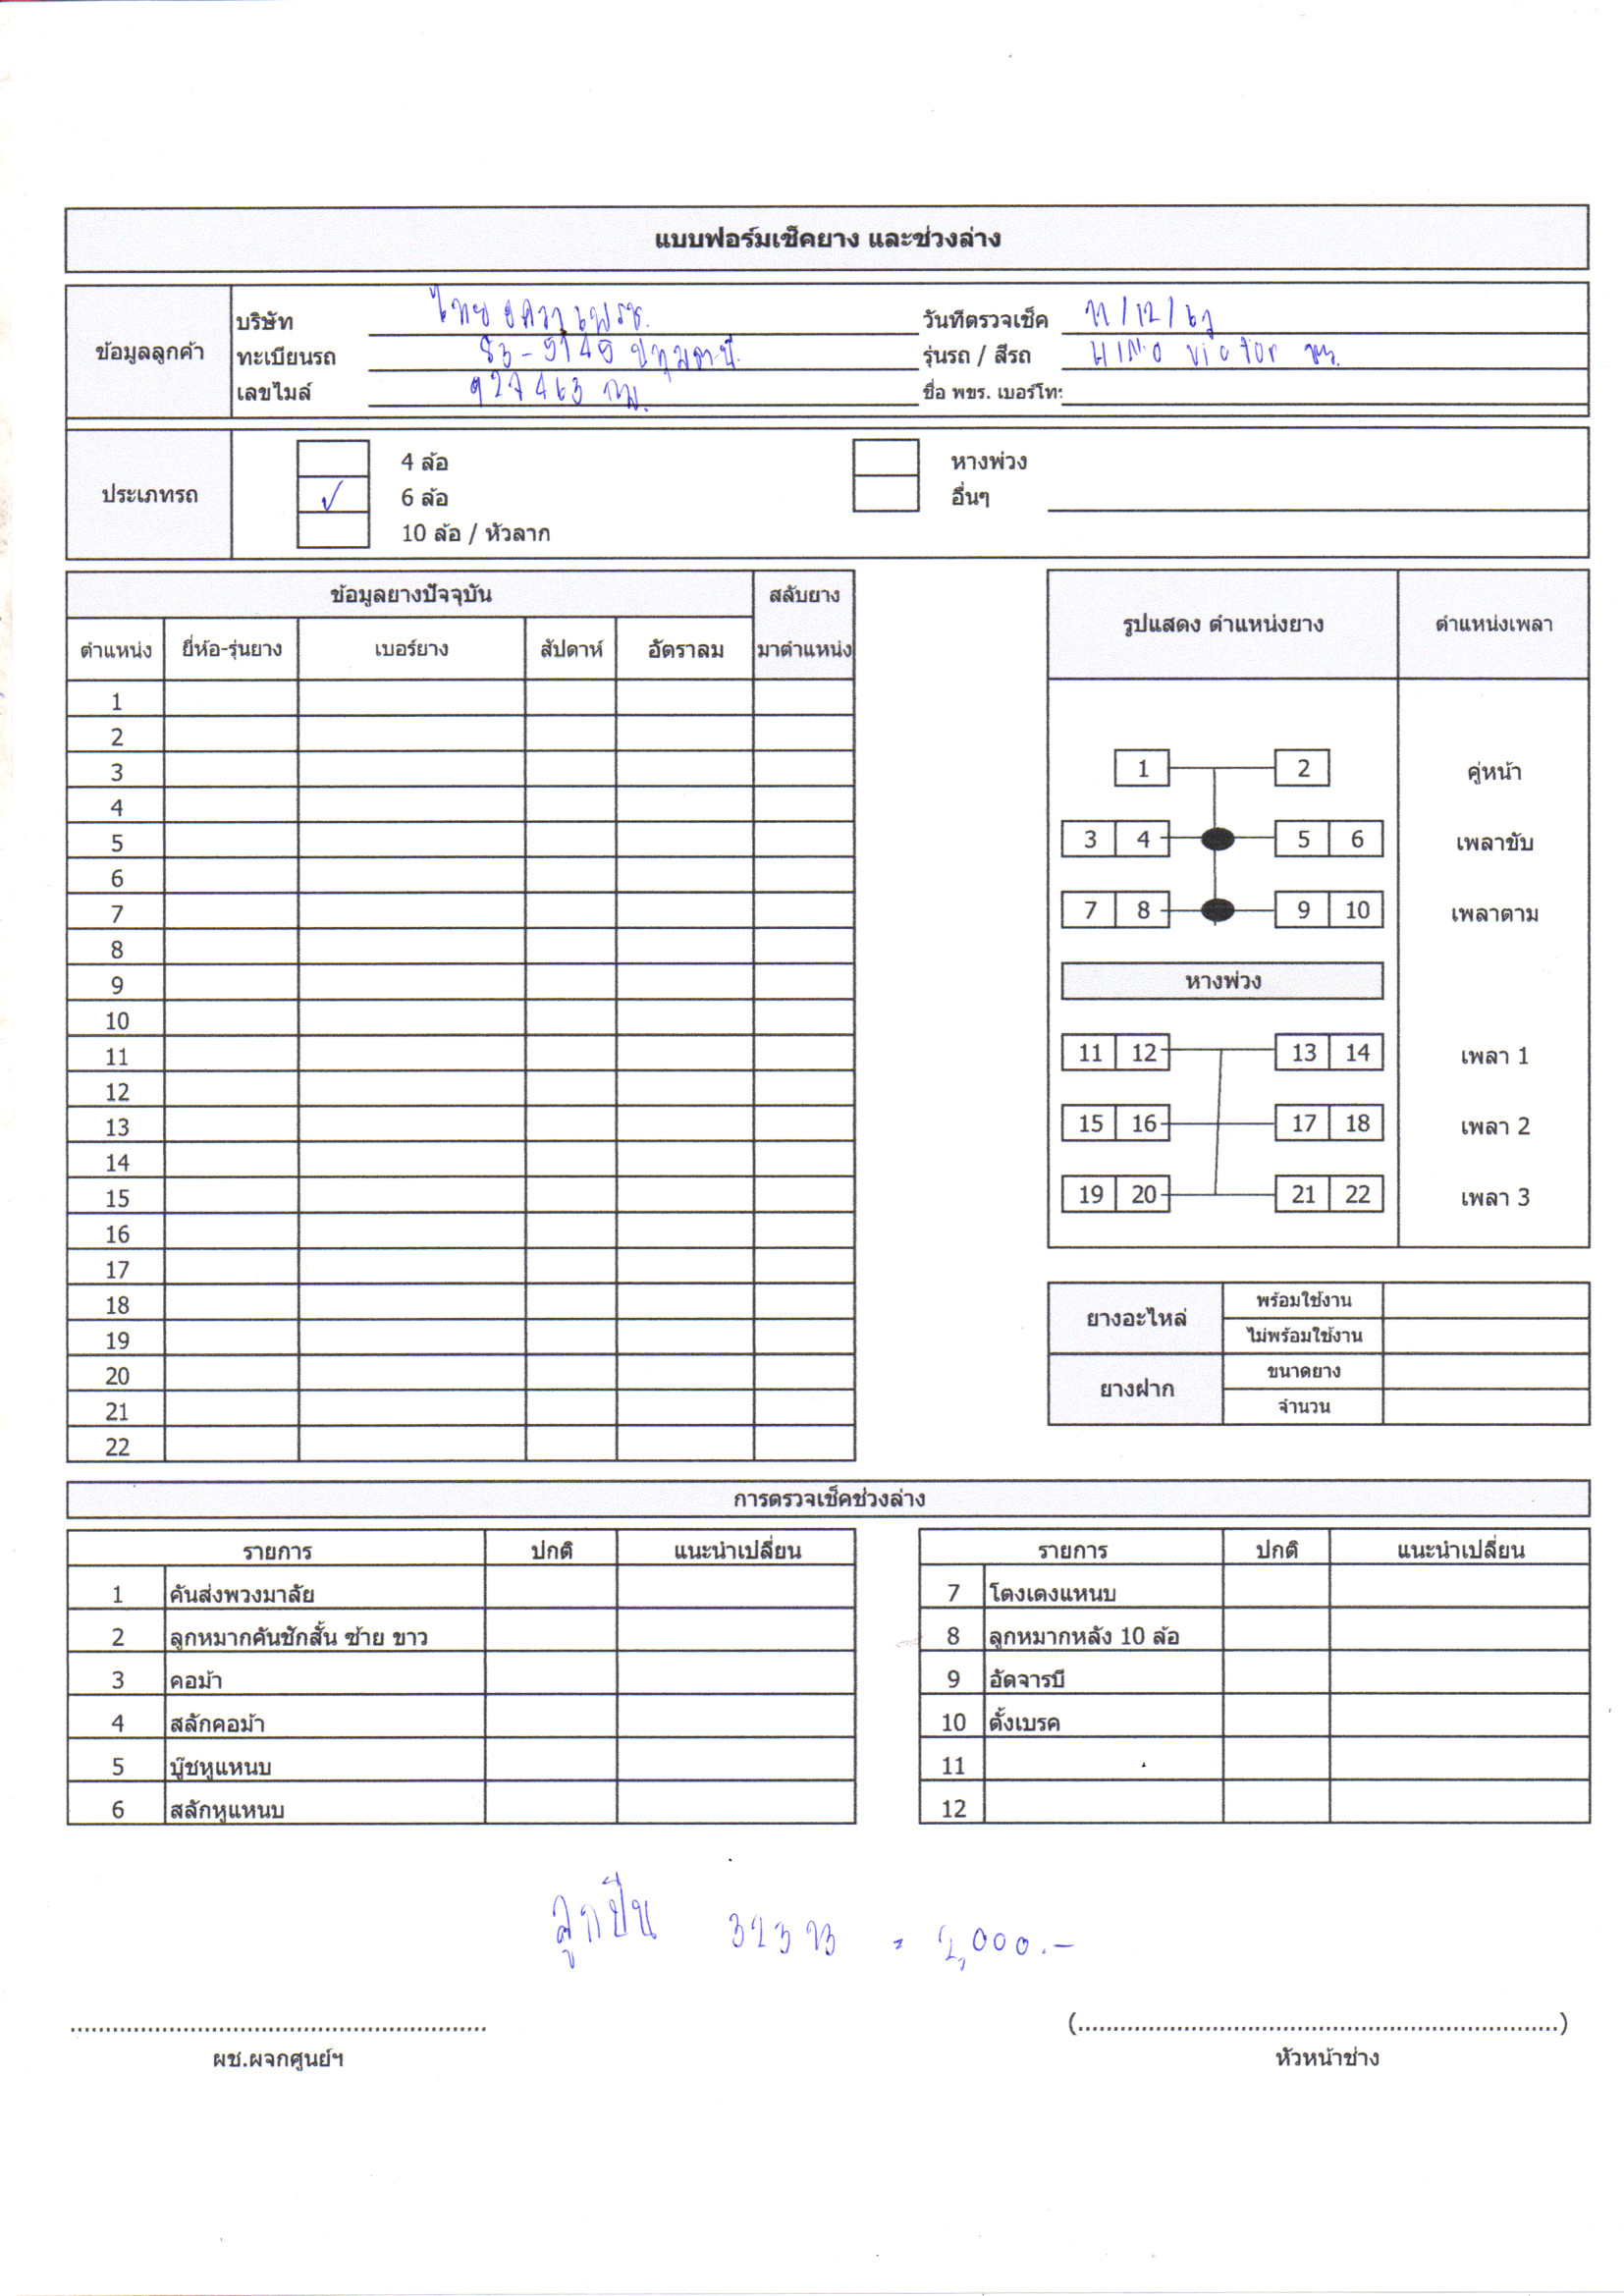 แบบฟอร์มเช็คยาง และช่วงล่าง
ข้อมูลลูกค้า
บริษัท ไทย
วันที่ตรวจเช็ค 11/12/67
ทะเบียนรถ 83-5145 ปทุมธานี
รุ่นรถ / สีรถ HINO victor
เลขไมล์ 927463 กม.
ชื่อ พขร. เบอร์โทร
ประเภทรถ
4 ล้อ หางพ่วง
✓ 6 ล้อ อื่นๆ
10 ล้อ / หัวลาก
ข้อมูลยางปัจจุบัน สลับยาง
ตำแหน่ง ยี่ห้อ-รุ่นยาง เบอร์ยาง สัปดาห์ อัตราลม มาตำแหน่ง
1
2
3
4
5
6
7
8
9
10
11
12
13
14
15
16
17
18
19
20
21
22
รูปแสดง ตำแหน่งยาง ตำแหน่งเพลา
1 2 คู่หน้า
3 4 5 6 เพลาขับ
7 8 9 10 เพลาตาม
หางพ่วง
11 12 13 14 เพลา 1
15 16 17 18 เพลา 2
19 20 21 22 เพลา 3
ยางอะไหล่ พร้อมใช้งาน
ไม่พร้อมใช้งาน
ยางฝาก ขนาดยาง
จำนวน
การตรวจเช็คช่วงล่าง
รายการ ปกติ แนะนำเปลี่ยน
1 คันส่งพวงมาลัย
2 ลูกหมากคันชักสั้น ซ้าย ขาว
3 คอม้า
4 สลักคอม้า
5 บู๊ชหูแหนบ
6 สลักหูแหนบ
รายการ ปกติ แนะนำเปลี่ยน
7 โตงเตงแหนบ
8 ลูกหมากหลัง 10 ล้อ
9 อัดจารบี
10 ตั้งเบรค
11
12
ลูกปืน 32313 = 2,000.-
ผช.ผจกศูนย์ฯ
(..............................)
หัวหน้าช่าง